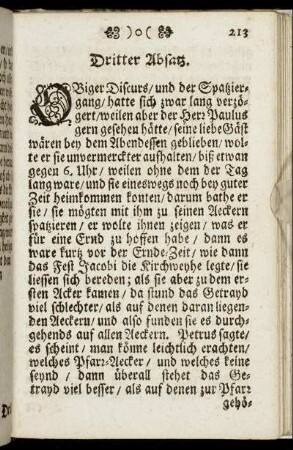 )o( 213
Dritter Absatz.
OBiger Discurs/ und der Spatzier-
gang/ hatte sich zwar lang verzö-
gert/ weilen aber der Herr Paulus
gern gesehen hätte/ seine liebe Gäst
wären bey dem Abendessen geblieben/ wol-
te er sie unvermerckter aufhalten/ biß etwan
gegen 6. Uhr/ weilen ohne dem der Tag
lang ware/ und sie eineswegs noch bey guter
Zeit heimkommen konten/ darum bathe er
sie/ sie mögten mit ihm zu seinen Aeckern
spatzieren/ er wolte ihnen zeigen/ was er
für eine Ernd zu hoffen habe/ dann es
ware kurtz vor der Ernde-Zeit/ wie dann
das Fest Jacobi die Kirchweyhe legte/ sie
liessen sich bereden; als sie aber zu dem er-
sten Acker kamen/ da stund das Getrayd
viel schlechter/ als auf denen daran liegen-
den Aeckern/ und also funden sie es durch-
gehends auf allen Aeckern. Petrus sagte/
es scheint/ man könne leichtlich erachten/
welches Pfarr-Aecker/ und welches keine
seynd/ dann überall stehet das Ge-
trayd viel besser/ als auf denen zur Pfarr
gehö-